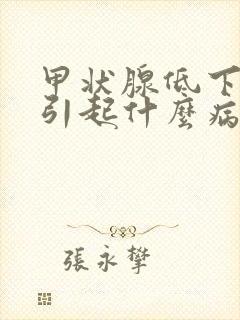 甲状腺低下
引起什麼病
張永攀